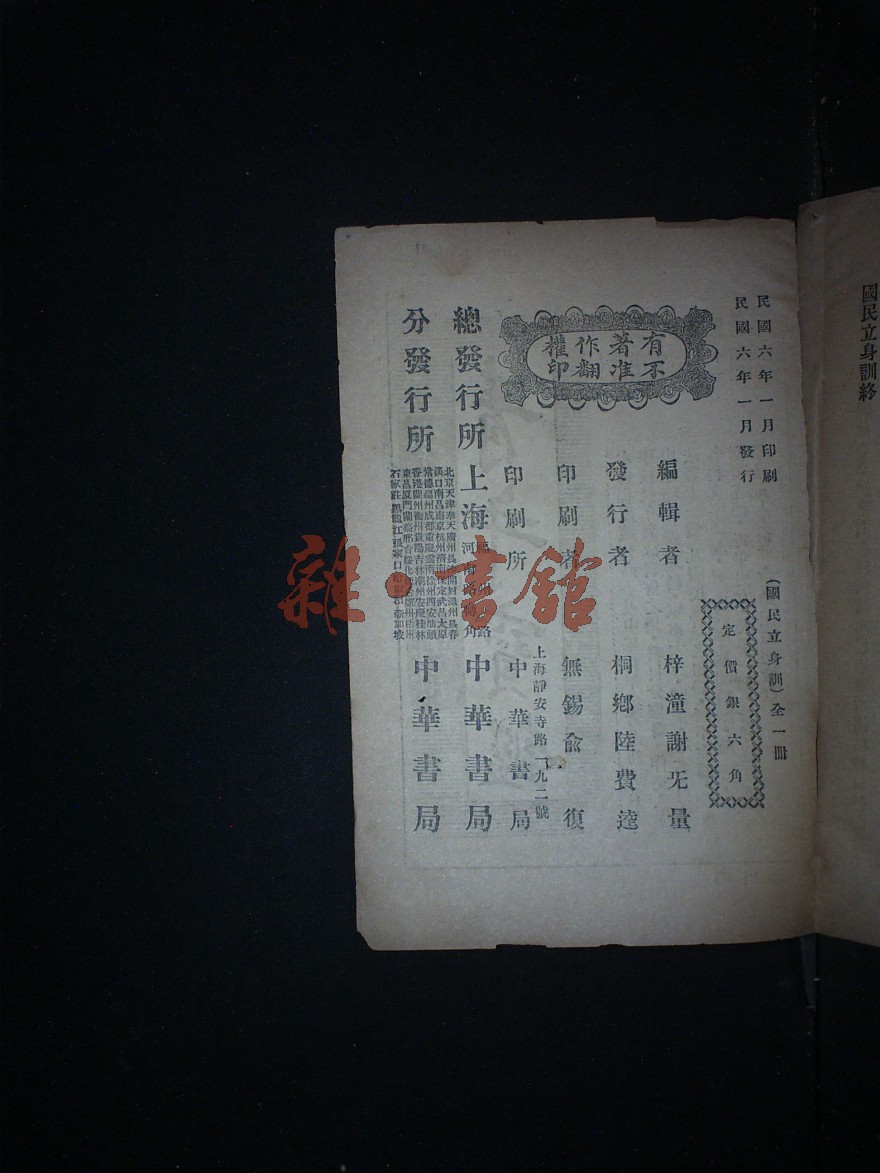 國民立身訓終
民國六年一月印刷
民國六年一月發行
(國民立身訓)全一冊
定價銀六角
有著作權
不准翻印
編輯者 梓潼謝无量
發行者 桐鄉陸費逵
印刷者 無錫俞復
印刷所 上海靜安寺路一九二號 中華書局
總發行所 上海 河南路角 中華書局
分發行所 中華書局
北京天津奉天廣州長沙開封溫州長春
漢口南昌南京杭州濟南保定武昌太原
常德福州成都重慶雲南徐州西安汕頭
香港蘭州衡州貴陽吉林潮州安慶桂林
東昌廈門蘭谿
石家莊黑龍江張家口 新加坡
雜·書館